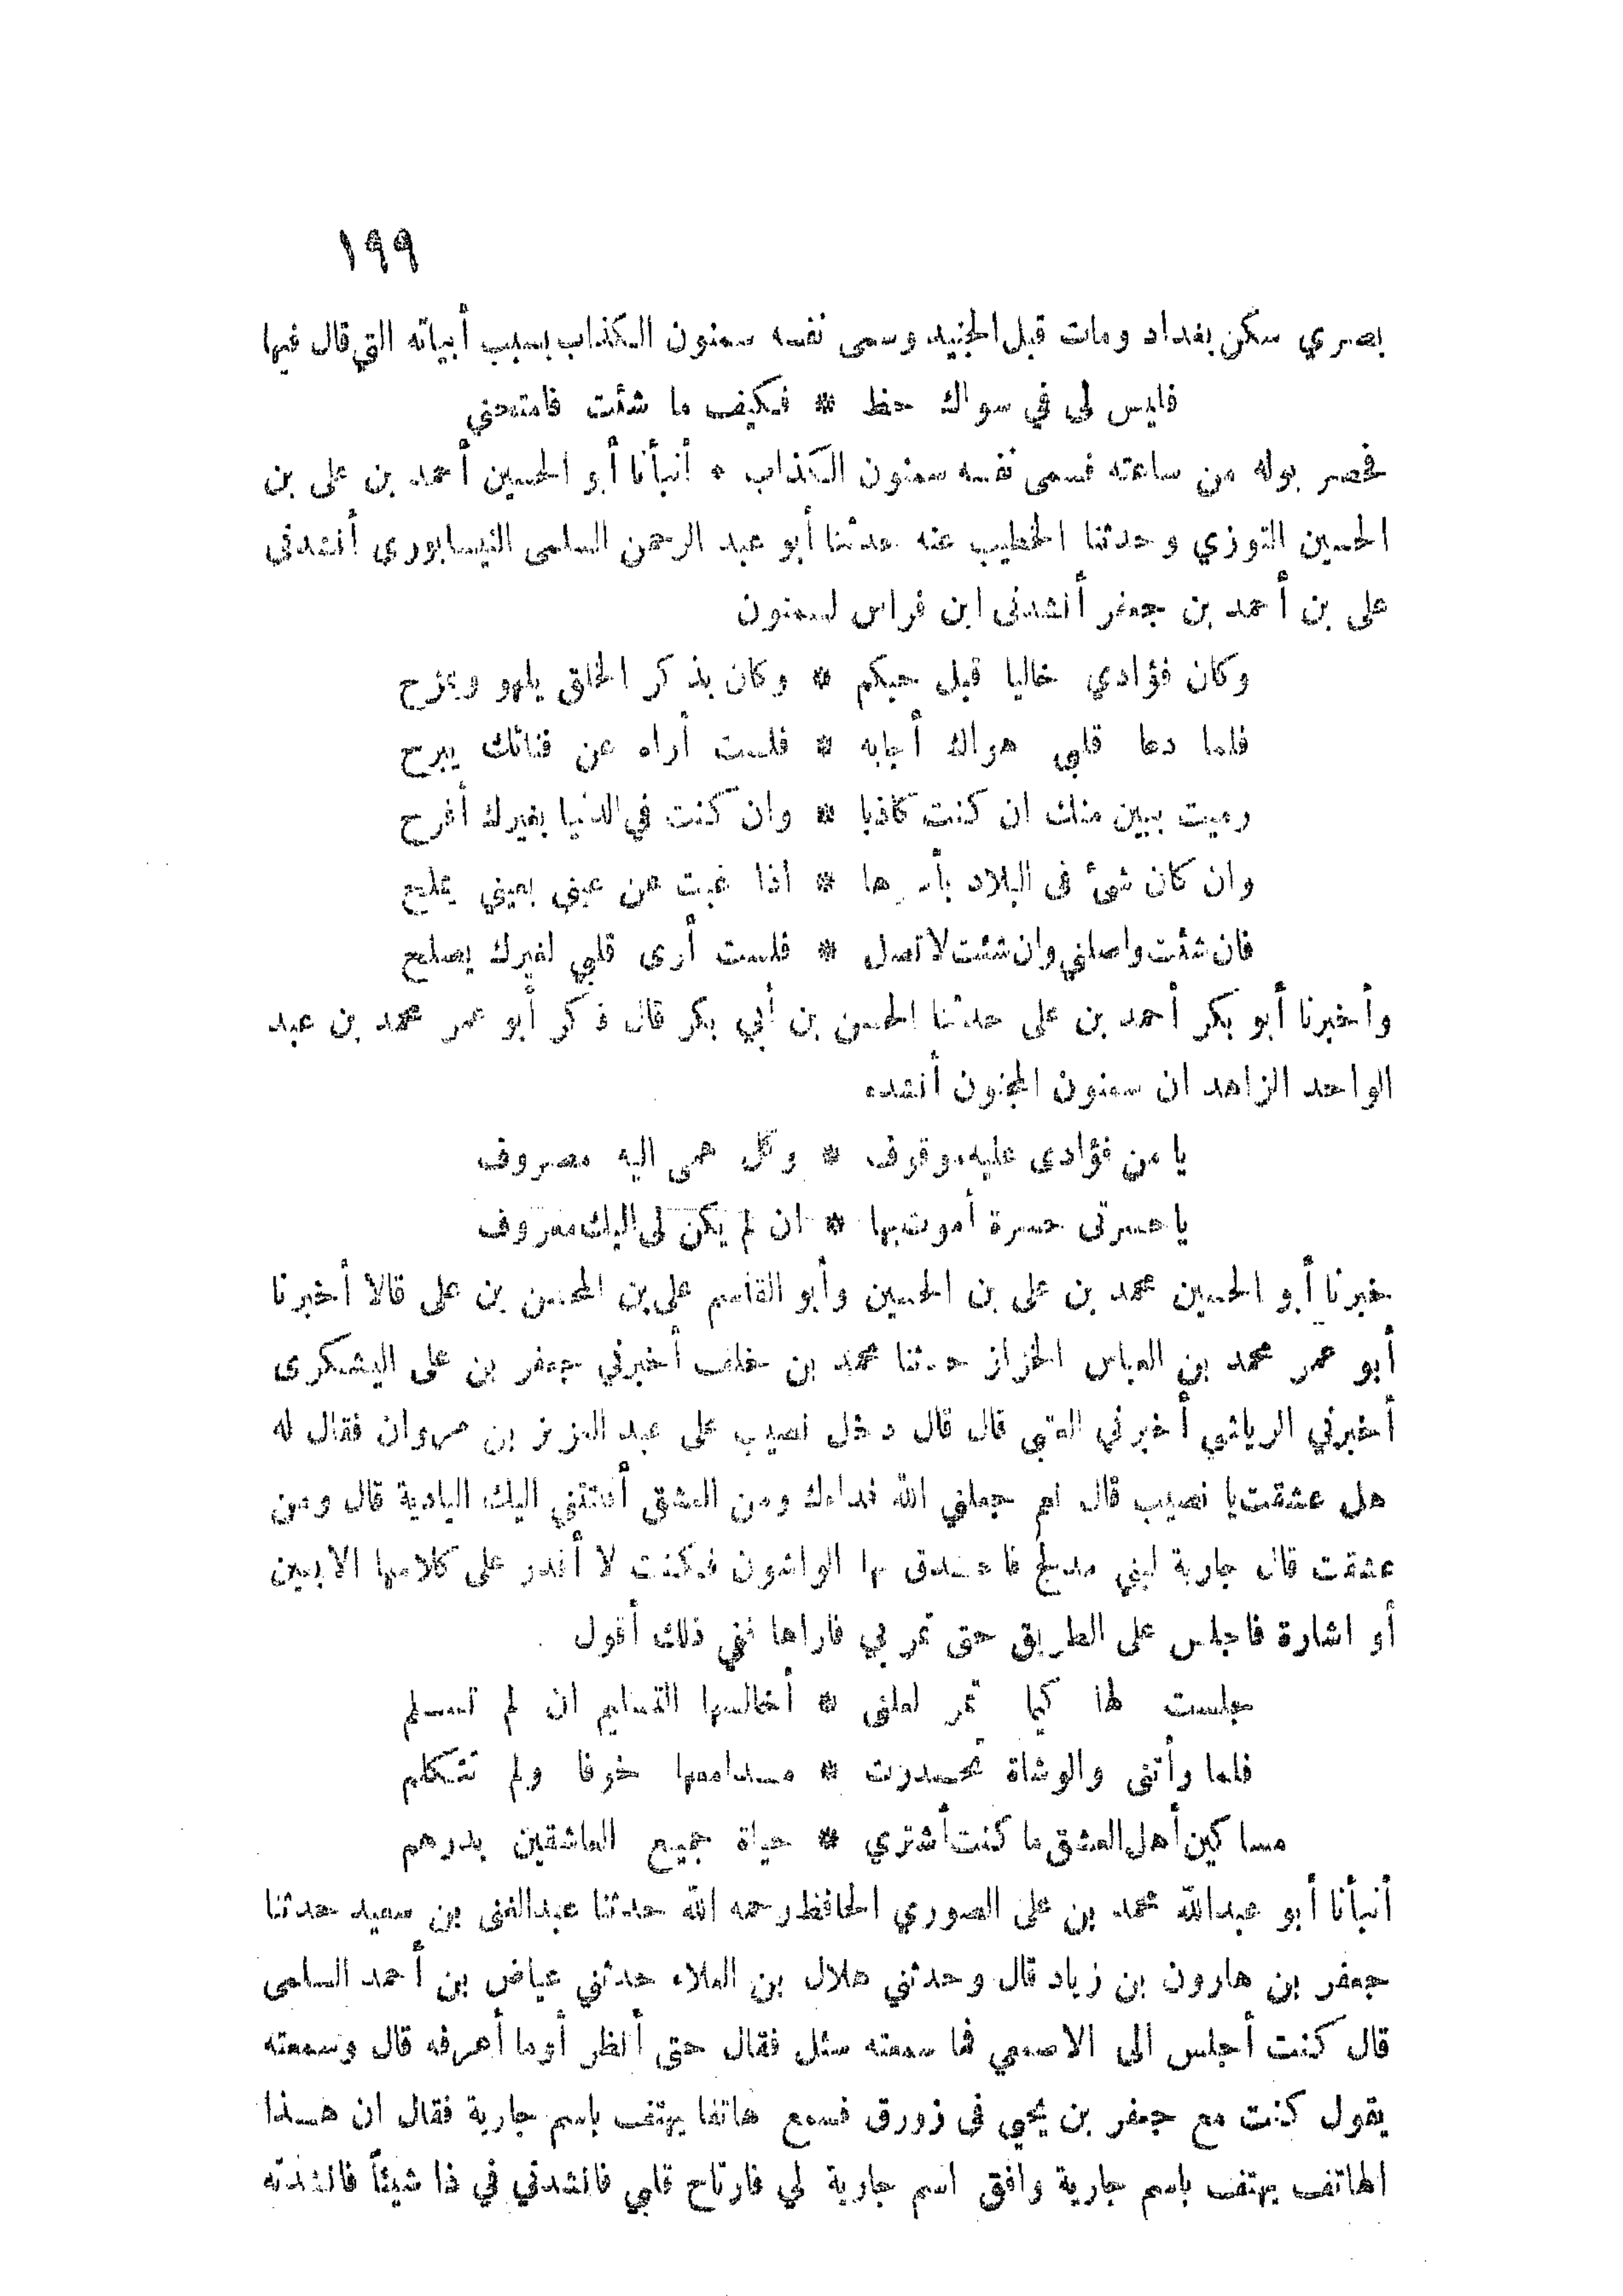 ١٩٩
بصري سكن بغداد ومات قبل الجنيد وسمى نفسه سمنون الكذاب بسبب أبياته التي قال فيها
فليس لى في سواك حظ * فكيف ما شئت فامتحني
فحصر بوله من ساعته فسمى نفسه سمنون الكذاب * أنبأنا أبو الحسين أحمد بن على بن
الحسين التوزي وحدثنا الخطيب عنه حدثنا أبو عبد الرحمن السلمى النيسابورى أنشدنى
على بن أحمد بن جعفر أنشدنى ابن فراس لسمنون
وكان فؤادي خاليا قبل حبكم * وكان بذكر الخلق يلهو ويمزح
فلما دعا قلبي هواك أجابه * فلست أراه عن فنائك يبرح
رميت ببين منك ان كنت كاذبا * وان كنت في الدنيا بغيرك أفرح
وان كان شئ فى البلاد بأسرها * اذا غبت عن عينى بعيني يملح
فان شئت واصلني وان شئت لا تصل * فلست أرى قلبي لغيرك يصلح
وأخبرنا أبو بكر أحمد بن على حدثنا الحسن بن أبي بكر قال ذكر أبو عمر محمد بن عبد
الواحد الزاهد ان سمنون المجنون أنشده
يا من فؤادى عليه موقوف * وكل همى اليه مصروف
يا حسرتى حسرة أموت بها * ان لم يكن لى اليك معروف
خبرنا أبو الحسين محمد بن على بن الحسين وأبو القاسم علي بن المحسن بن على قالا أخبرنا
أبو عمر محمد بن العباس الخزاز حدثنا محمد بن خلف أخبرني جعفر بن على اليشكرى
أخبرني الرياشي أخبرني العتبي قال قال دخل نصيب على عبد العزيز بن مروان فقال له
هل عشقت يا نصيب قال نعم جعلني الله فداءك ومن العشق أفلتتني اليك البادية قال ومن
عشقت قال جارية لبني مدلج فاحدق بها الواشون فكنت لا أقدر على كلامها الا بعين
أو اشارة فاجلس على الطريق حتى تمر بي فاراها ففي ذلك أقول
جلست لها كيما تمر لعلنى * أخالسها التسليم ان لم تسلم
فلما رأتنى والوشاة تحدرت * مدامعها خوفا ولم تتكلم
مساكين أهل العشق ما كنت أشتري * حياة جميع العاشقين بدرهم
أنبأنا أبو عبدالله محمد بن على الصوري الحافظ رحمه الله حدثنا عبدالغنى بن سعيد حدثنا
جعفر بن هارون بن زياد قال وحدثني هلال بن العلاء حدثني عياض بن أحمد السلمى
قال كنت أجلس الى الاصمعي فما سمعته سئل فقال حتى أنظر أوما أعرفه قال وسمعته
يقول كنت مع جعفر بن يحيي فى زورق فسمع هاتفا يهتف باسم جارية فقال ان هذا
الهاتف يهتف باسم جارية وافق اسم جارية لي فارتاح قلبي فانشدني في ذا شيئاً فانشدته